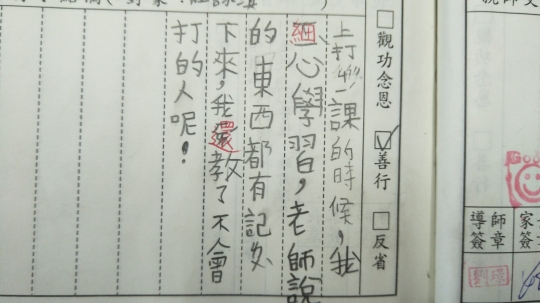 觀功念恩
善行
反省
上打擊課的時候，我
細心學習，老師說
的東西都有記
下來，我還教了不會
打的人呢！
導師簽章
家
簽